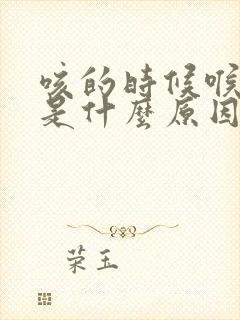 咳的時候喉
是什麼原因
荣玉